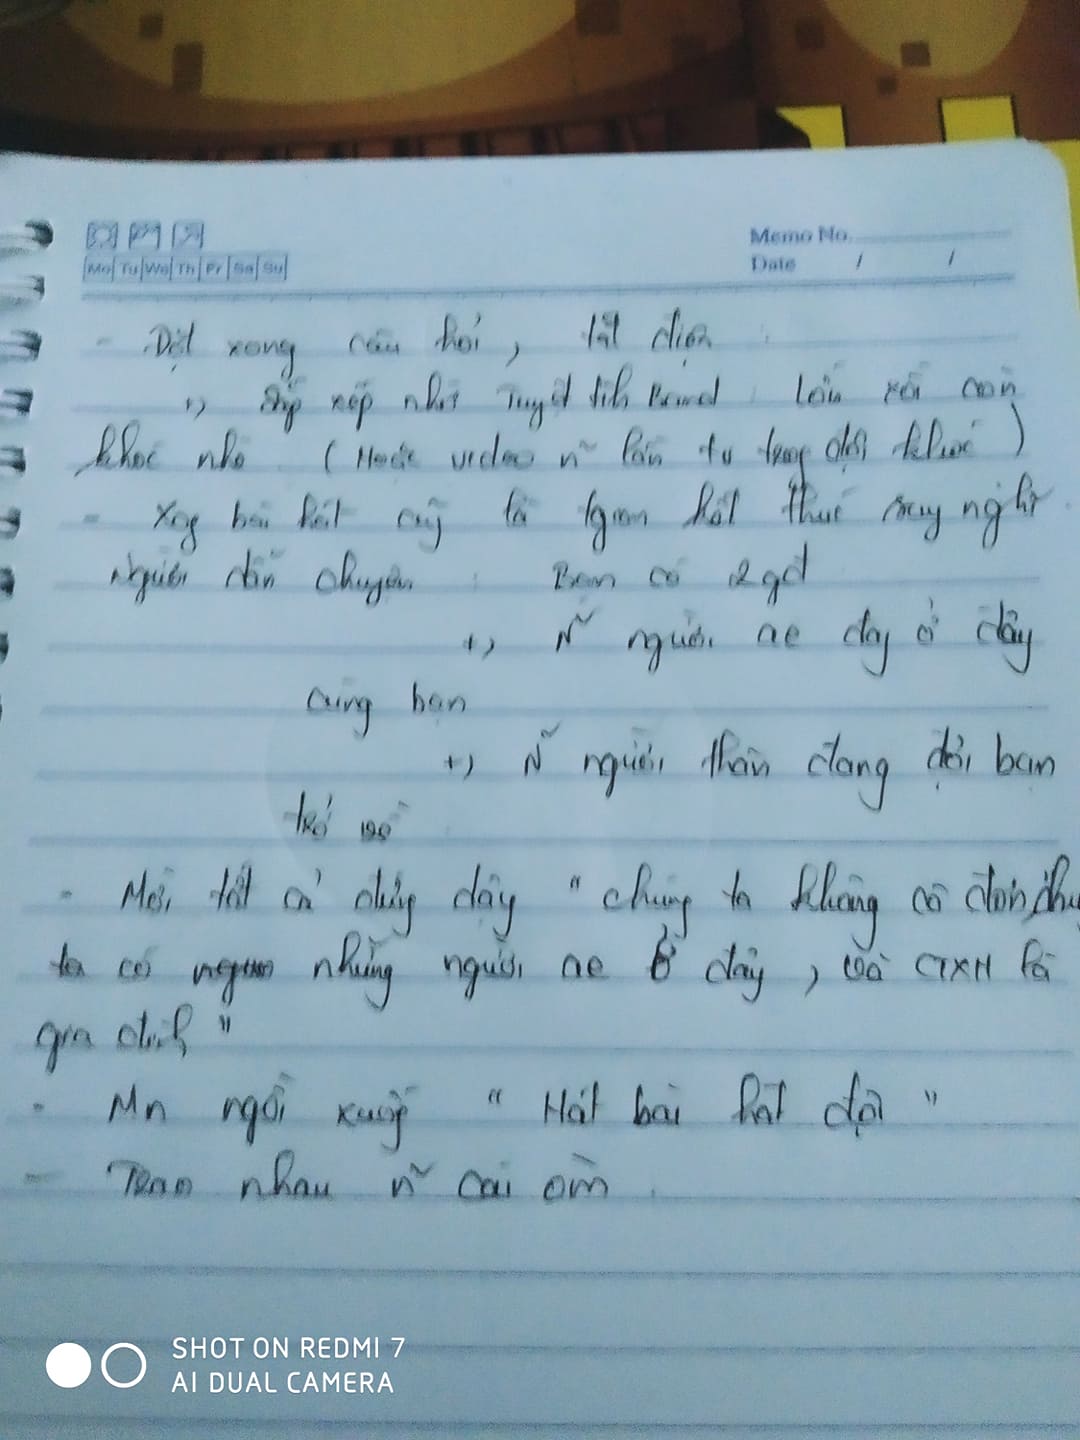 Mo Tu We Th Fr Sa Su
Memo No.
Date / /
- Đặt xong câu hỏi, tắt điện
+) Sắp xếp như Tuyệt tình Band lớn rồi còn
khóc nhè (Hoặc video n~ lần tự trong đội khóc)
- Xog bài hát cũg là tgian kết thúc suy nghĩ
Người dẫn chuyện : Bạn có 2 gđ
+) N~ người ae đag ở đây
cùng bạn
+) N~ người thân đang đợi bạn
trở về
- Mời tất cả đứng dậy "chúng ta không cô đơn, chúg
ta có những người ae ở đây, và CTXH là
gia đình"
- Mn ngồi xuốg "Hát bài hát đội"
- Trao nhau n~ cái ôm.
SHOT ON REDMI 7
AI DUAL CAMERA